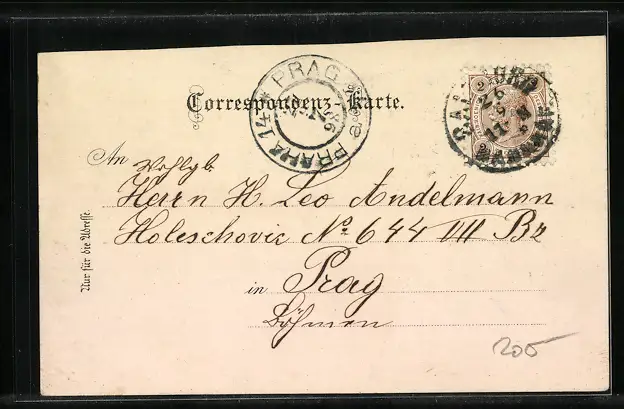 PRAG PRAHA 14
Correspondenz-Karte.
An Wohlgb
Herrn H. Leo Andelmann
Holeschovic No. 644 VII Bz
in Prag
Böhmen
Nur für die Adresse.
205